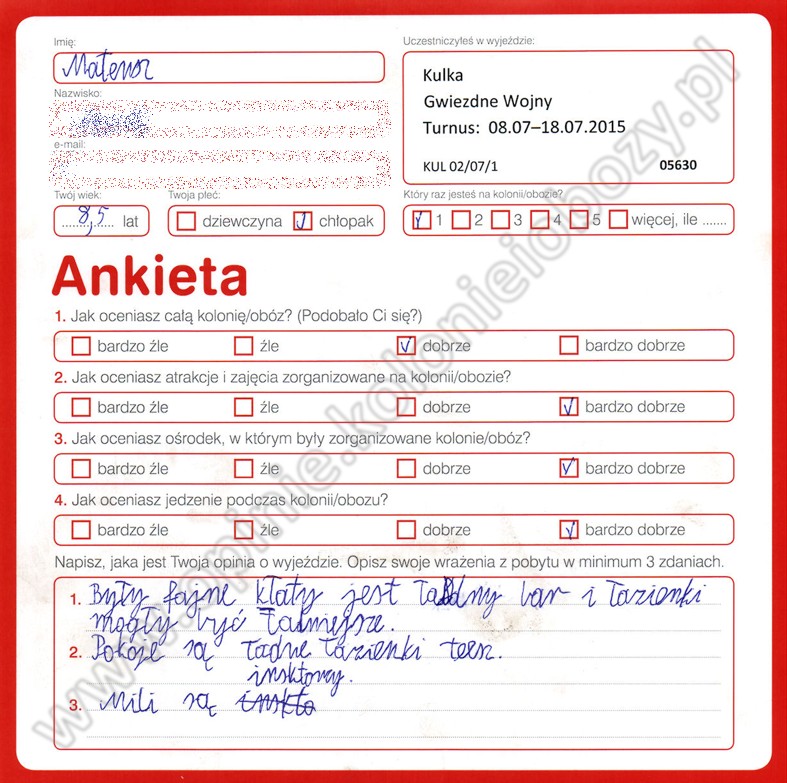 Imię:
Mateusz
Uczestniczyłeś w wyjeździe:
Kulka
Gwiezdne Wojny
Turnus: 08.07–18.07.2015
KUL 02/07/1 05630
Nazwisko:
e-mail:
Twój wiek:
8,5 lat
Twoja płeć:
dziewczyna chłopak
Który raz jesteś na kolonii/obozie?
1 2 3 4 5 więcej, ile .......
Ankieta
1. Jak oceniasz całą kolonię/obóz? (Podobało Ci się?)
bardzo źle źle dobrze bardzo dobrze
2. Jak oceniasz atrakcje i zajęcia zorganizowane na kolonii/obozie?
bardzo źle źle dobrze bardzo dobrze
3. Jak oceniasz ośrodek, w którym były zorganizowane kolonie/obóz?
bardzo źle źle dobrze bardzo dobrze
4. Jak oceniasz jedzenie podczas kolonii/obozu?
bardzo źle źle dobrze bardzo dobrze
Napisz, jaka jest Twoja opinia o wyjeździe. Opisz swoje wrażenia z pobytu w minimum 3 zdaniach.
1. Były fajne kłaty jest ładny bar i łazienki
mogły być
2. Pokoje są ładne łazienki
insktorzy.
3. Mili są
www.opinie.kolonieiobozy.pl